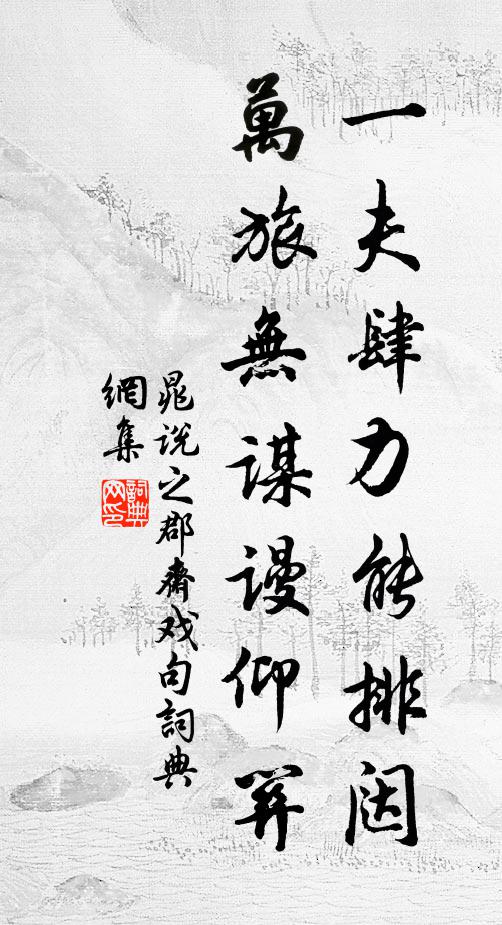 一夫肆力能排闼
萬旅無谋谩仰關
晁说之郡齋戏句詞典
網集
詞典
网印